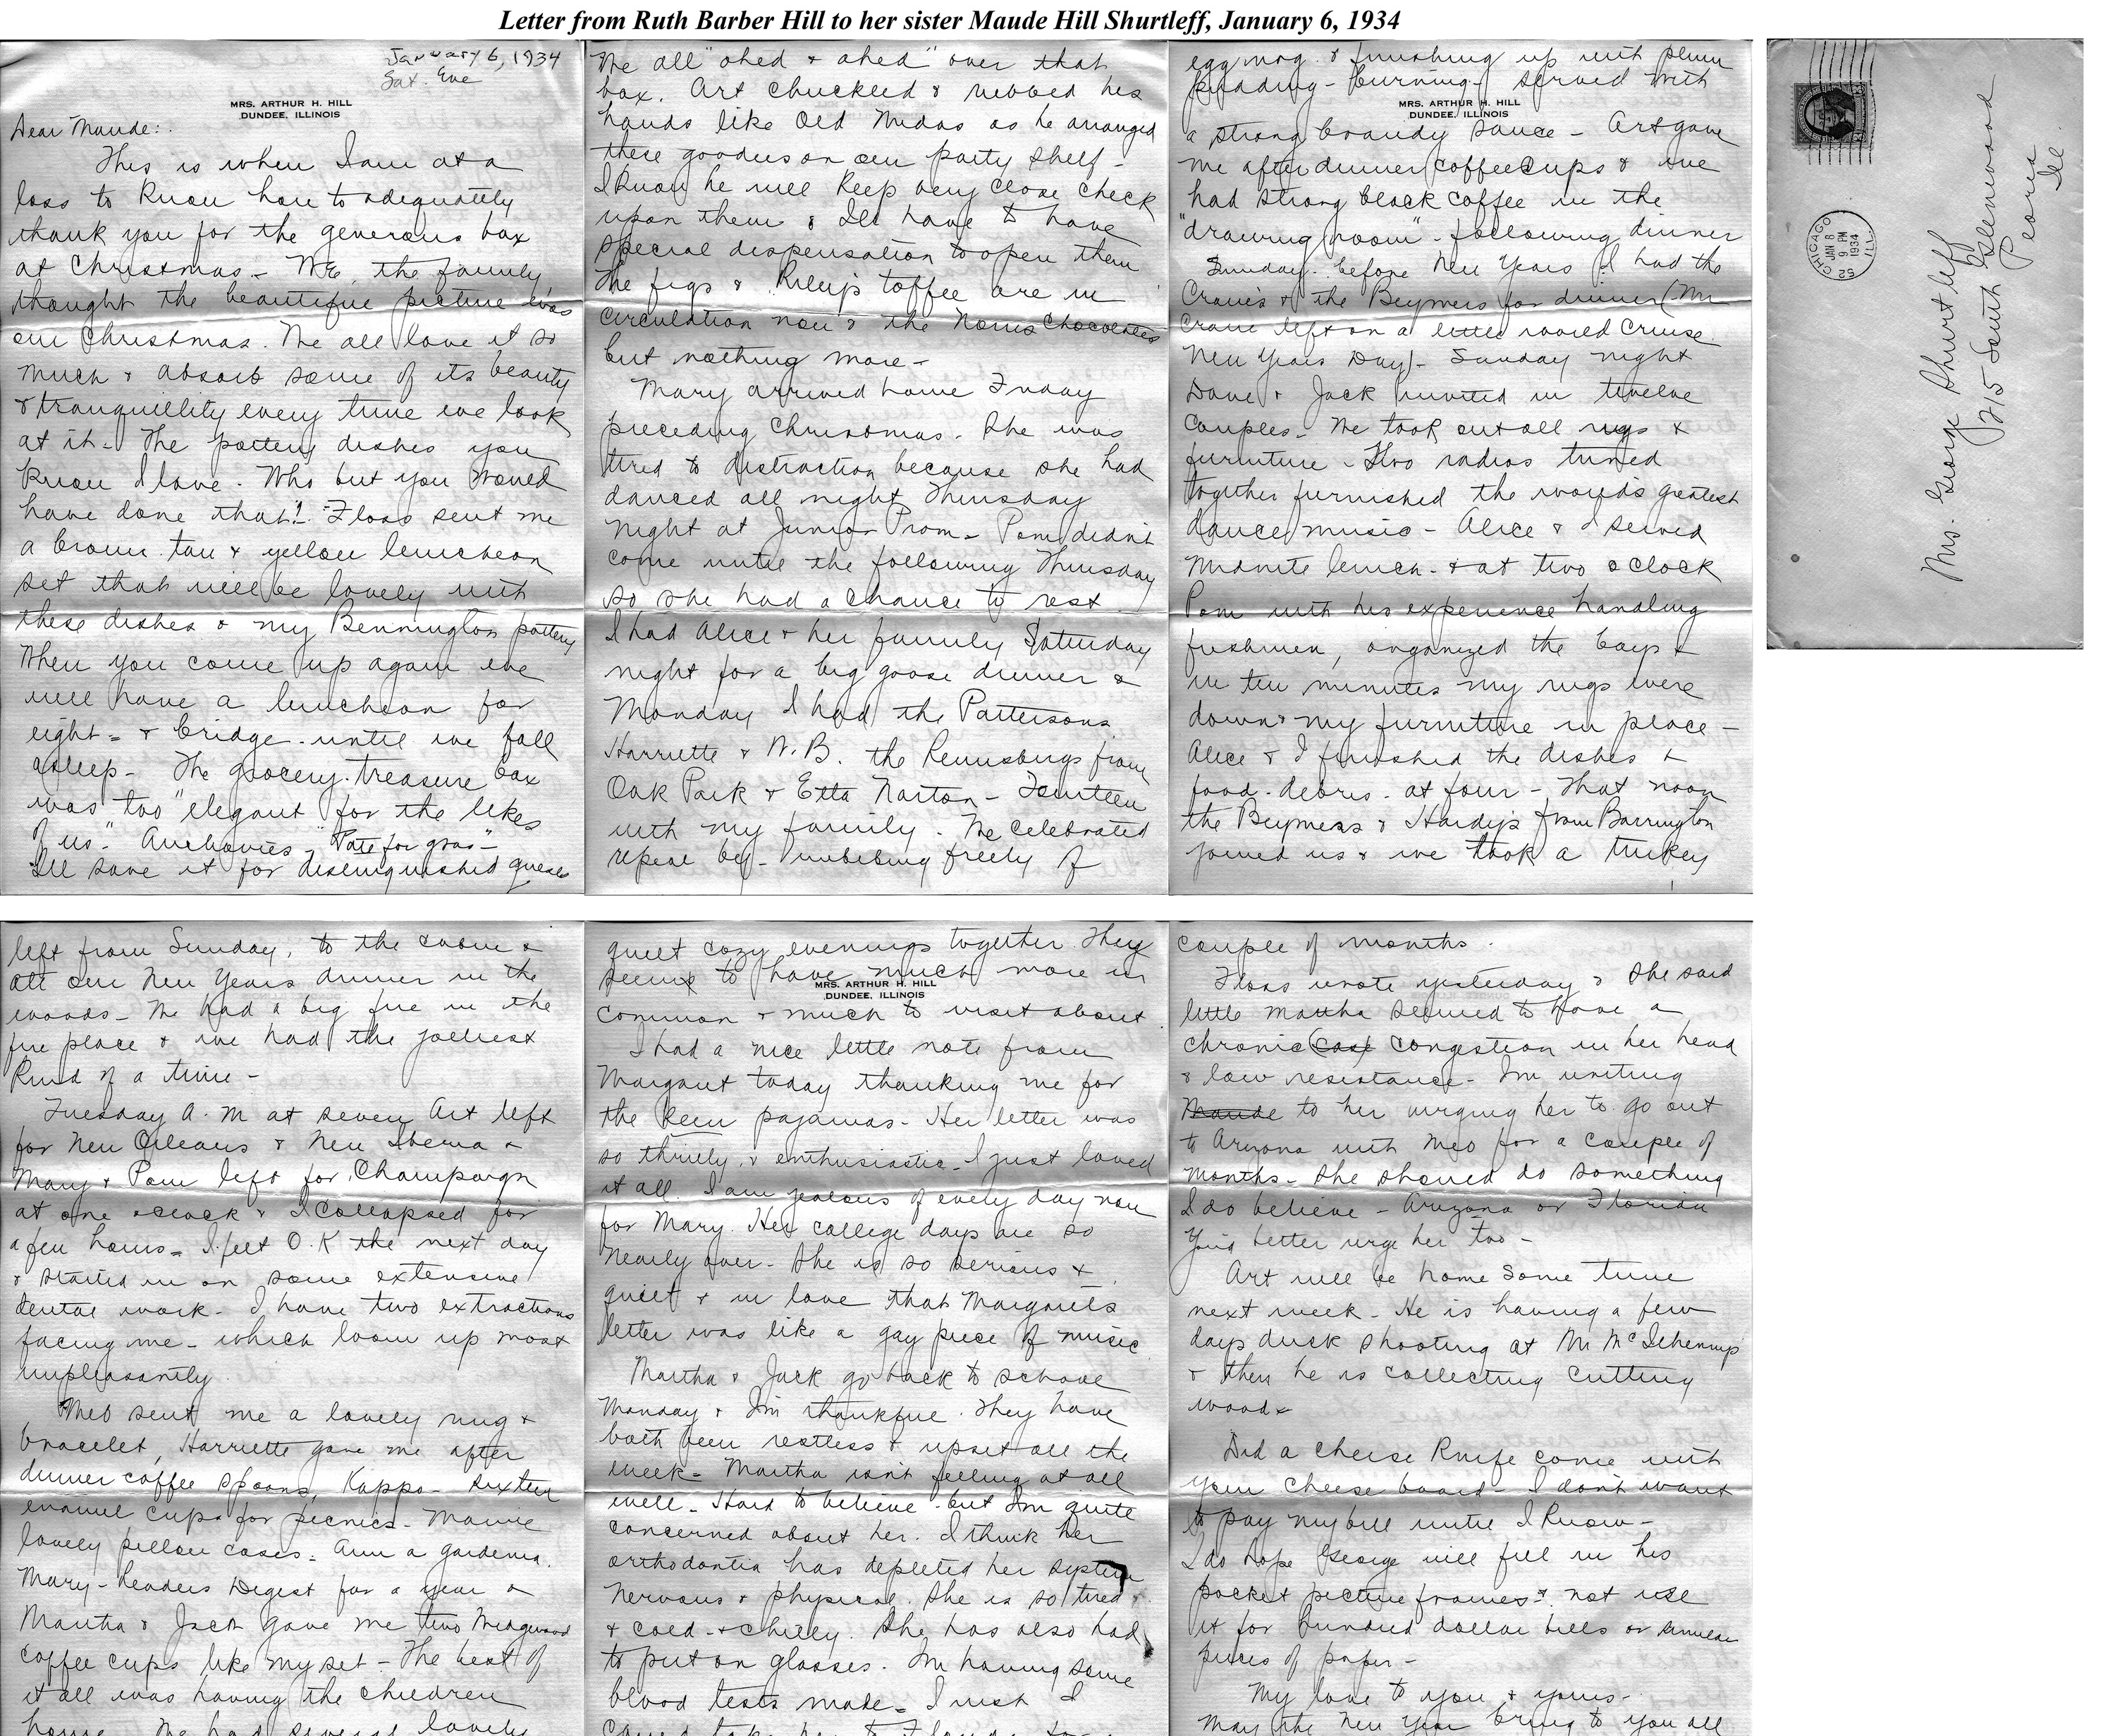 Letter from Ruth Barber Hill to her sister Maude Hill Shurtleff, January 6, 1934
January 6, 1934
Sat. Eve
MRS. ARTHUR H. HILL
DUNDEE, ILLINOIS
Dear Maude:
This is when I am at a
loss to know how to adequately
thank you for the generous box
at Christmas - We, the family
thought the beautiful picture was
our Christmas. We all love it so
much & absorb some of its beauty
& tranquillity every time we look
at it - The pottery dishes you
know I love. Who but you would
have done that! Floss sent me
a brown tan & yellow luncheon
set that will be lovely with
these dishes & my Bennington pottery
When you come up again we
will have a luncheon for
eight - & bridge - until we fall
asleep - The grocery treasure box
was too "elegant for the likes
of us." Anchovies - "Pate for gras" -
I'll save it for distinguished guests
We all "ohed & ahed" over that
box. Art chuckled & rubbed his
hands like Old Midas as he arranged
these goodies on our party shelf -
I know he will keep very close check
upon them & I'll have to have
special dispensation to open them
The figs & Riley's toffee are in
circulation now & the Norris Chocolates
but nothing more -
Mary arrived home Friday
preceding Christmas. She was
tired to distraction because she had
danced all night Thursday
night at Junior Prom - Pom didn't
come until the following Thursday
so she had a chance to rest
I had Alice & her family Saturday
night for a big goose dinner &
Monday I had the Pattersons
Harriette & W.B. the Rennsburgs from
Oak Park & Etta Norton - Fourteen
with my family. We celebrated
repeal by - imbibing freely of
egg nog & finishing up with plum
pudding - burning - served with
MRS. ARTHUR H. HILL
DUNDEE, ILLINOIS
a strong brandy sauce - Art gave
me after dinner coffee cups & we
had strong black coffee in the
"drawing room" - following dinner
Sunday before New Years I had the
Crane's & the Beymers for dinner (Mr
Crane left on a little cruise
New Years Day) - Sunday night
Dave & Jack invited in twelve
couples - We took out all rugs &
furniture - Two radios tuned
together furnished the world's greatest
dance music - Alice & I served
midnite lunch - & at two o'clock
Pom with his experience handling
freshmen, organized the boys &
in ten minutes my rugs were
down & my furniture in place -
Alice & I finished the dishes &
food - debris - at four - That noon
the Beymers & Hardy's from Barrington
joined us & we took a turkey
left from Sunday, to the cabin &
ate our New Years dinner in the
woods - We had a big fire in the
fire place & we had the jolliest
kind of a time -
Tuesday A.M at seven Art left
for New Orleans & New Iberia &
Mary & Pom left for Champaign
at one o'clock & I collapsed for
a few hours - I felt O.K the next day
& started in on some extensive
dental work - I have two extractions
facing me - which loom up most
unpleasantly.
Meb sent me a lovely rug &
bracelet, Harriette gave me after
dinner coffee spoons, Kappo - sixteen
enamel cups for picnics - Mamie
lovely pillow cases - Ann a gardenia.
Mary - Readers Digest for a year &
Martha & Jack gave me two Wedgwood
coffee cups like my set - The best of
it all was having the children
home. We had several lovely
quiet cozy evenings together They
seem to have much more in
MRS. ARTHUR H. HILL
DUNDEE, ILLINOIS
common & much to visit about.
I had a nice little note from
Margaret today thanking me for
the keen pajamas - Her letter was
so thrilly & enthusiastic - I just loved
it all. I am jealous of every day now
for Mary. Her college days are so
nearly over - She is so serious &
quiet & in love that Margaret's
letter was like a gay piece of music
Martha & Jack go back to school
Monday & I'm thankful. They have
both been restless & upset all the
week - Martha isn't feeling at all
well - Hard to believe - but I'm quite
concerned about her. I think her
orthodontia has depleted her system
nervous & physical. She is so tired
& cold - & chilly. She has also had
to put on glasses. I'm having some
blood tests made - I wish I
could take her to Florida for a
couple of months.
Floss wrote yesterday & she said
little Martha seemed to have a
chronic case congestion in her head
& low resistance - I'm writing
Maude to her urging her to go out
to Arizona with Meb for a couple of
months - She should do something
I do believe - Arizona or Florida
You'd better urge her too -
Art will be home some time
next week - He is having a few
days duck shooting at Mr McIlhennys
& then he is collecting cutting
woods
Did a cheese knife come with
your cheese board - I don't want
to pay my bill until I know -
I do hope George will fill in his
pocket picture frames & not use
it for hundred dollar bills or similar
pieces of paper -
My love to you & yours -
May the New Year bring to you all
CHICAGO
JAN 8
9 PM
1934
ILL.
52
Mrs. George Shurtleff
215 South Glenwood
Peoria
Ill.